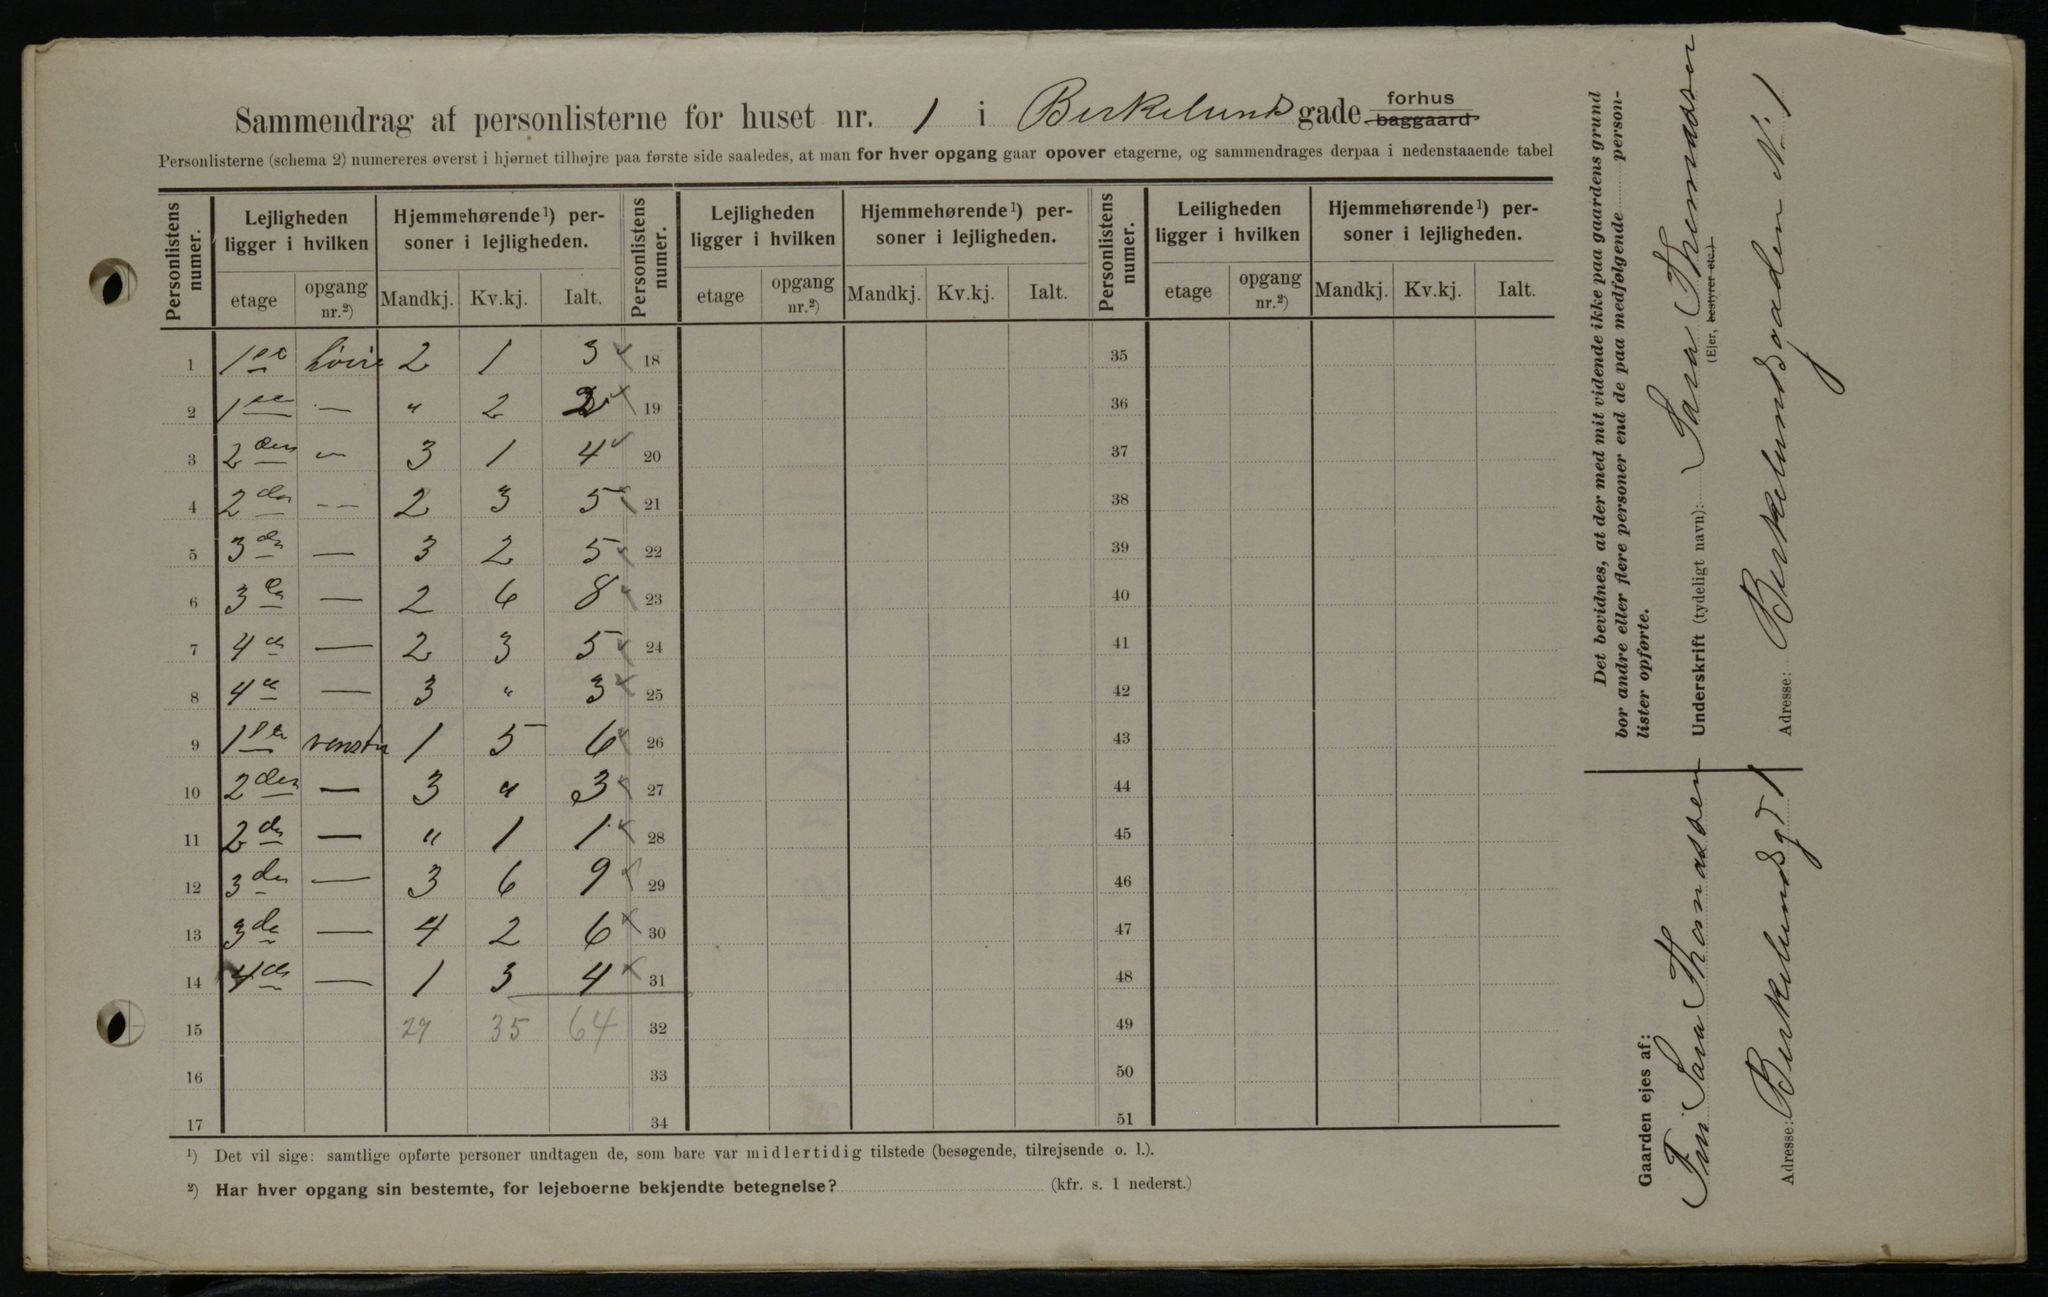 Sammendrag af personlisterne for huset nr. 1 i Birkelunds gade forhus baggaard
Personlisterne (schema 2) numereres øverst i hjørnet tilhøjre paa første side saaledes, at man for hver opgang gaar opover etagerne, og sammendrages derpaa i nedenstaaende tabel
Personlistens numer. Lejligheden ligger i hvilken Hjemmehørende¹) personer i lejligheden. Personlistens numer. Lejligheden ligger i hvilken Hjemmehørende¹) personer i lejligheden. Personlistens numer. Leiligheden ligger i hvilken Hjemmehørende¹) personer i lejligheden.
etage opgang nr.²) Mandkj. Kv.kj. Ialt. etage opgang nr.²) Mandkj. Kv.kj. Ialt. etage opgang nr.²) Mandkj. Kv.kj. Ialt.
1 1ste høire 2 1 3 18 35
2 1ste — " 2 2 19 36
3 2den — 3 1 4 20 37
4 2den — 2 3 5 21 38
5 3de — 3 2 5 22 39
6 3de — 2 6 8 23 40
7 4de — 2 3 5 24 41
8 4de — 3 " 3 25 42
9 1ste venstre 1 5 6 26 43
10 2den — 3 " 3 27 44
11 2den — " 1 1 28 45
12 3die — 3 6 9 29 46
13 3de — 4 2 6 30 47
14 4de — 1 3 4 31 48
15 29 35 64 32 49
16 33 50
17 34 51
¹) Det vil sige: samtlige opførte personer undtagen de, som bare var midlertidig tilstede (besøgende, tilrejsende o. l.).
²) Har hver opgang sin bestemte, for lejeboerne bekjendte betegnelse? (kfr. s. 1 nederst.)
Det bevidnes, at der med mit vidende ikke paa gaardens grund
bor andre eller flere personer end de paa medfølgende personlister opførte.
Underskrift (tydeligt navn): Sara Thomassen
(Ejer, bestyrer etc.)
Adresse: Birkelundsgaden No 1
Gaarden ejes af:
Fru Sara Thomassen
Adresse: Birkelundsgd 1